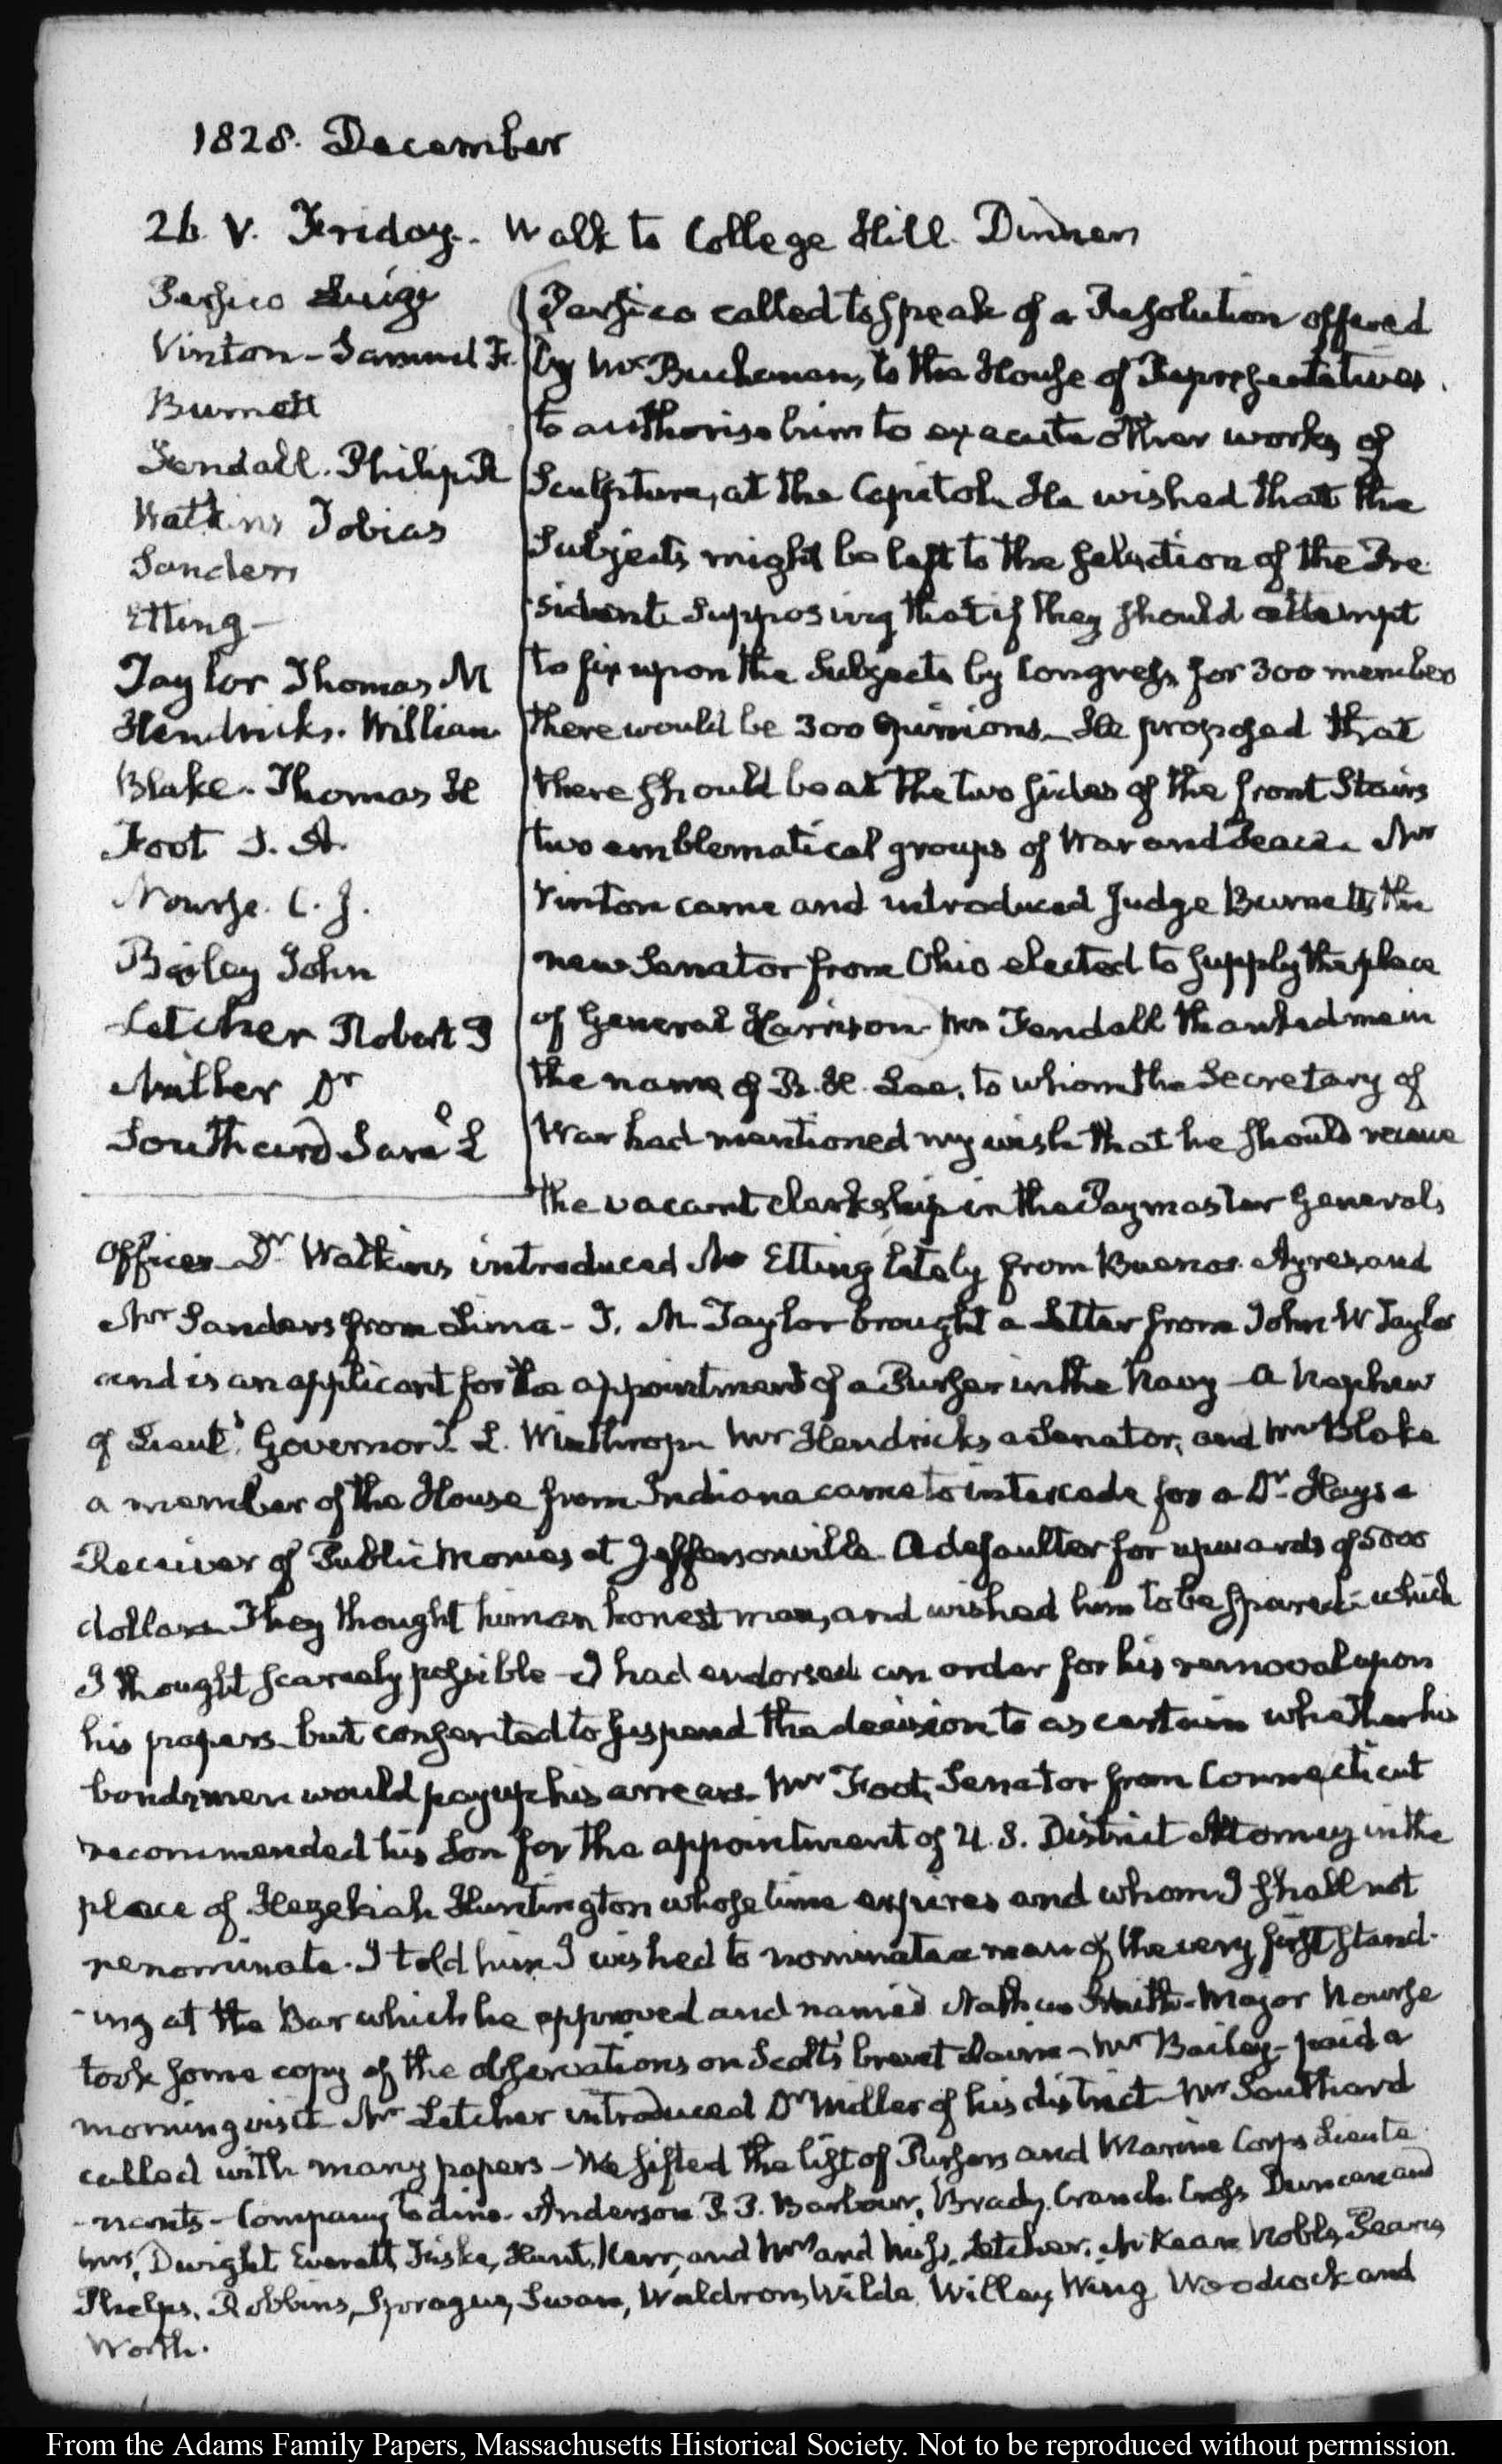 1828. December
26. V. Friday. Walk to College Hill. Dinner
Persico Luigi
Vinton - Samuel F.
Burnett
Fendall. Philip R
Watkins Tobias
Sanders
Etting -
Taylor Thomas M
Hendricks. William
Blake. Thomas H
Foot S. A.
Nourse. C. J.
Bailey John
Letcher Robert P
Miller Dr
Southard Samˡ L
Persico called to speak of a Resolution offered
by Mr Buchanan, to the House of Representatives
to authorise him to execute other works of
Sculpture, at the Capitol. He wished that the
Subjects might be left to the selection of the Pre-
-sident. Supposing that if they should attempt
to fix upon the Subjects by Congress, for 300 members
there would be 300 opinions. He proposed that
there should be at the two sides of the front Stairs
two emblematical groups of War and Peace. Mr
Vinton came and introduced Judge Burnett, the
new Senator from Ohio elected to supply the place
of General Harrison. Mr Fendall thanked me in
the name of R. H. Lee, to whom the Secretary of
War had mentioned my wish that he should receive
the vacant clerkship in the Paymaster General's
Office. Dr Watkins introduced Mr Etting lately from Buenos Ayres, and
Mr Sanders from Lima - T. M Taylor brought a Letter from John W Taylor
and is an applicant for the appointment of a Purser in the Navy - A Nephew
of Lieutt Governor T. L. Winthrop. Mr Hendricks a Senator, and Mr Blake
a member of the House from Indiana came to intercede for a Dr Hays a
Receiver of Public Monies at Jeffersonville. A defaulter for upwards of 5000
dollars. They thought him an honest man, and wished him to be spared - which
I thought scarcely possible - I had endorsed an order for his removal upon
his papers - but consented to suspend the decision to ascertain whether his
bondsmen would pay up his arrears. Mr Foot, Senator from Connecticut
recommended his Son for the appointment of U. S. District Attorney in the
place of Hezekiah Huntington whose time expires and whom I shall not
renominate. I told him I wished to nominate a man of the very first stand-
-ing at the Bar which he approved and named Nathan Smith - Major Nourse
took some copy of the observations on Scott's brevet claim - Mr Bailey - paid a
morning visit. Mr Letcher introduced Dr Miller of his district. Mr Southard
called with many papers - We sifted the list of Pursers and Marine Corps Lieute-
-nants - Company to dine. Anderson. P. P. Barbour, Brady, Cranch. Cross Duncan and
Mrs, Dwight Everett, Fiske, Hunt, Kerr, and Mrs and Miss, Letcher, McKean Noble, Pearce,
Phelps, Robbins, Sprague, Swan, Waldron, Wilde, Willey, Wing Woodcock and
Worth.
From the Adams Family Papers, Massachusetts Historical Society. Not to be reproduced without permission.